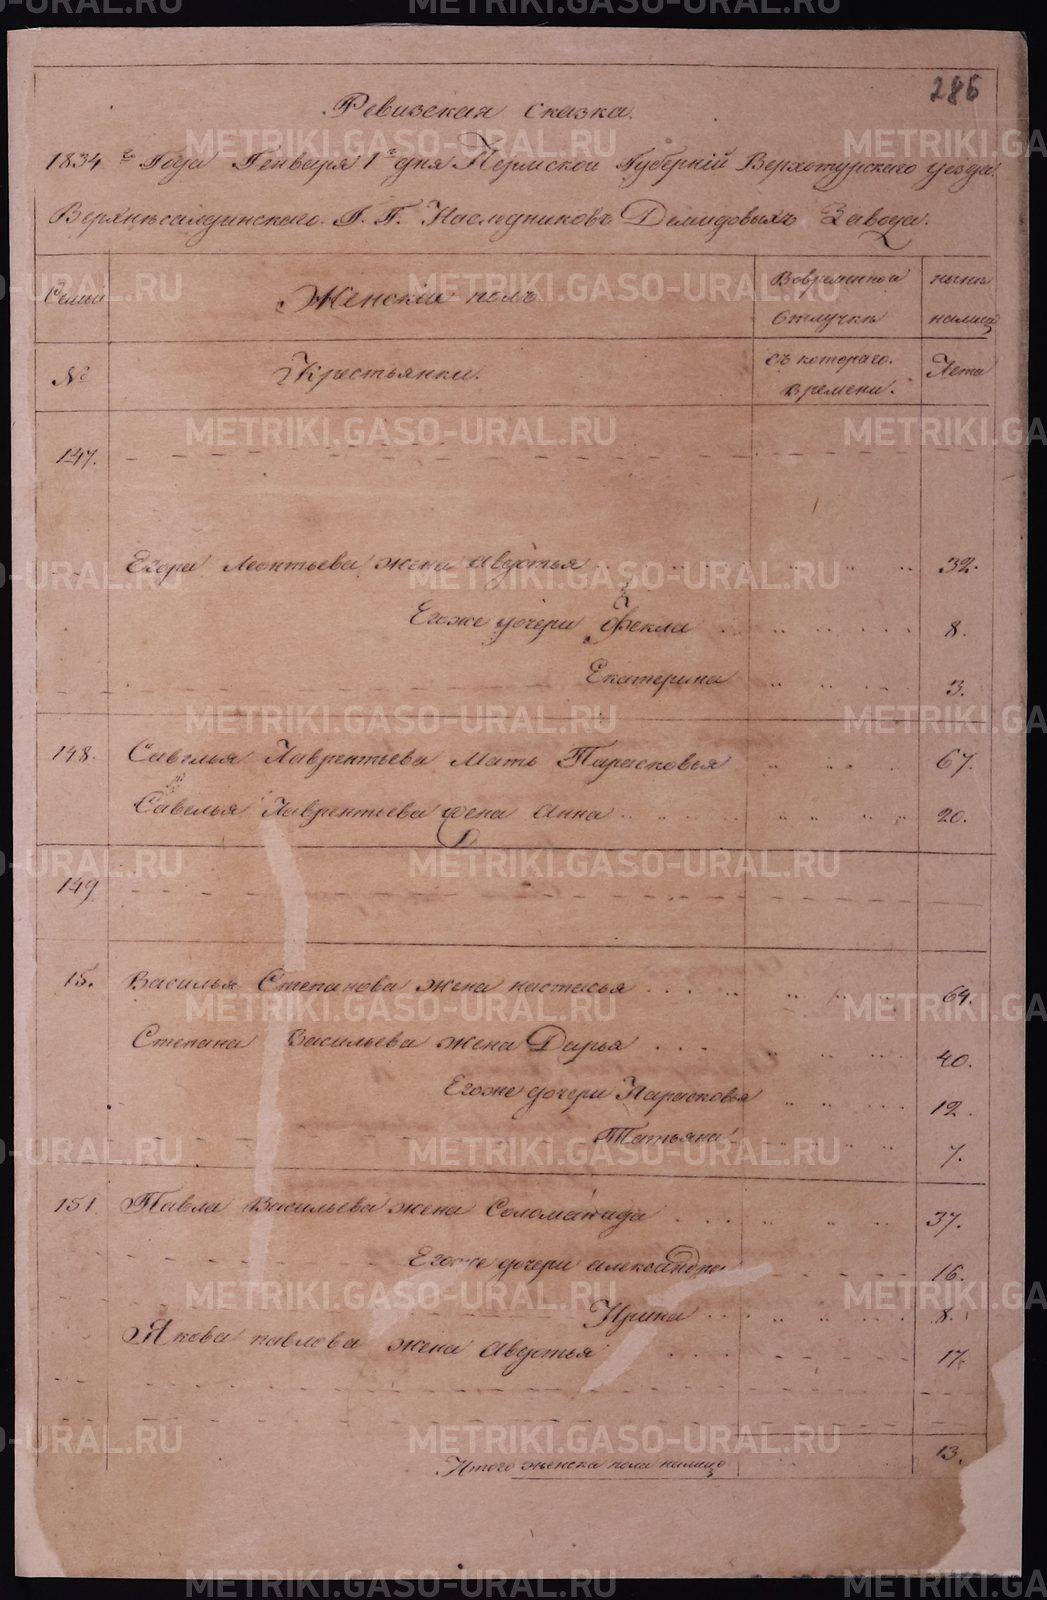 286
Ревизская сказка.
1834го Года Генваря 1го дня Пермской Губернiй Верхотурского уезда.
Верхнѣсалдинского. Г. Г. Наслѣдниковъ Демидовыхъ Завода.
Семьи Женскiй полъ Вовременной отлучки нынѣ налицо
№ Крестьянки. съ котораго. времени. Лета
147.
Егора Леонтьева жена Авдотья 32.
Егоже дочери Фекла 8.
Екатерина 3.
148. Савелья Лаврентьева Мать Парасковья 67.
Савелья Лаврентьева жена Анна 20.
149
15. Василья Степанова жена настасья 64.
Степана Васильева жена Дарья 40.
Егоже дочери Парасковья 12.
Татьяна 7.
151. Павла Васильева жена Соломанида 37.
Егоже дочери александра 16.
Ирина 8.
Якова павлова жена Авдотья 17.
Итого женска пола налицо 13.
METRIKI.GASO-URAL.RU